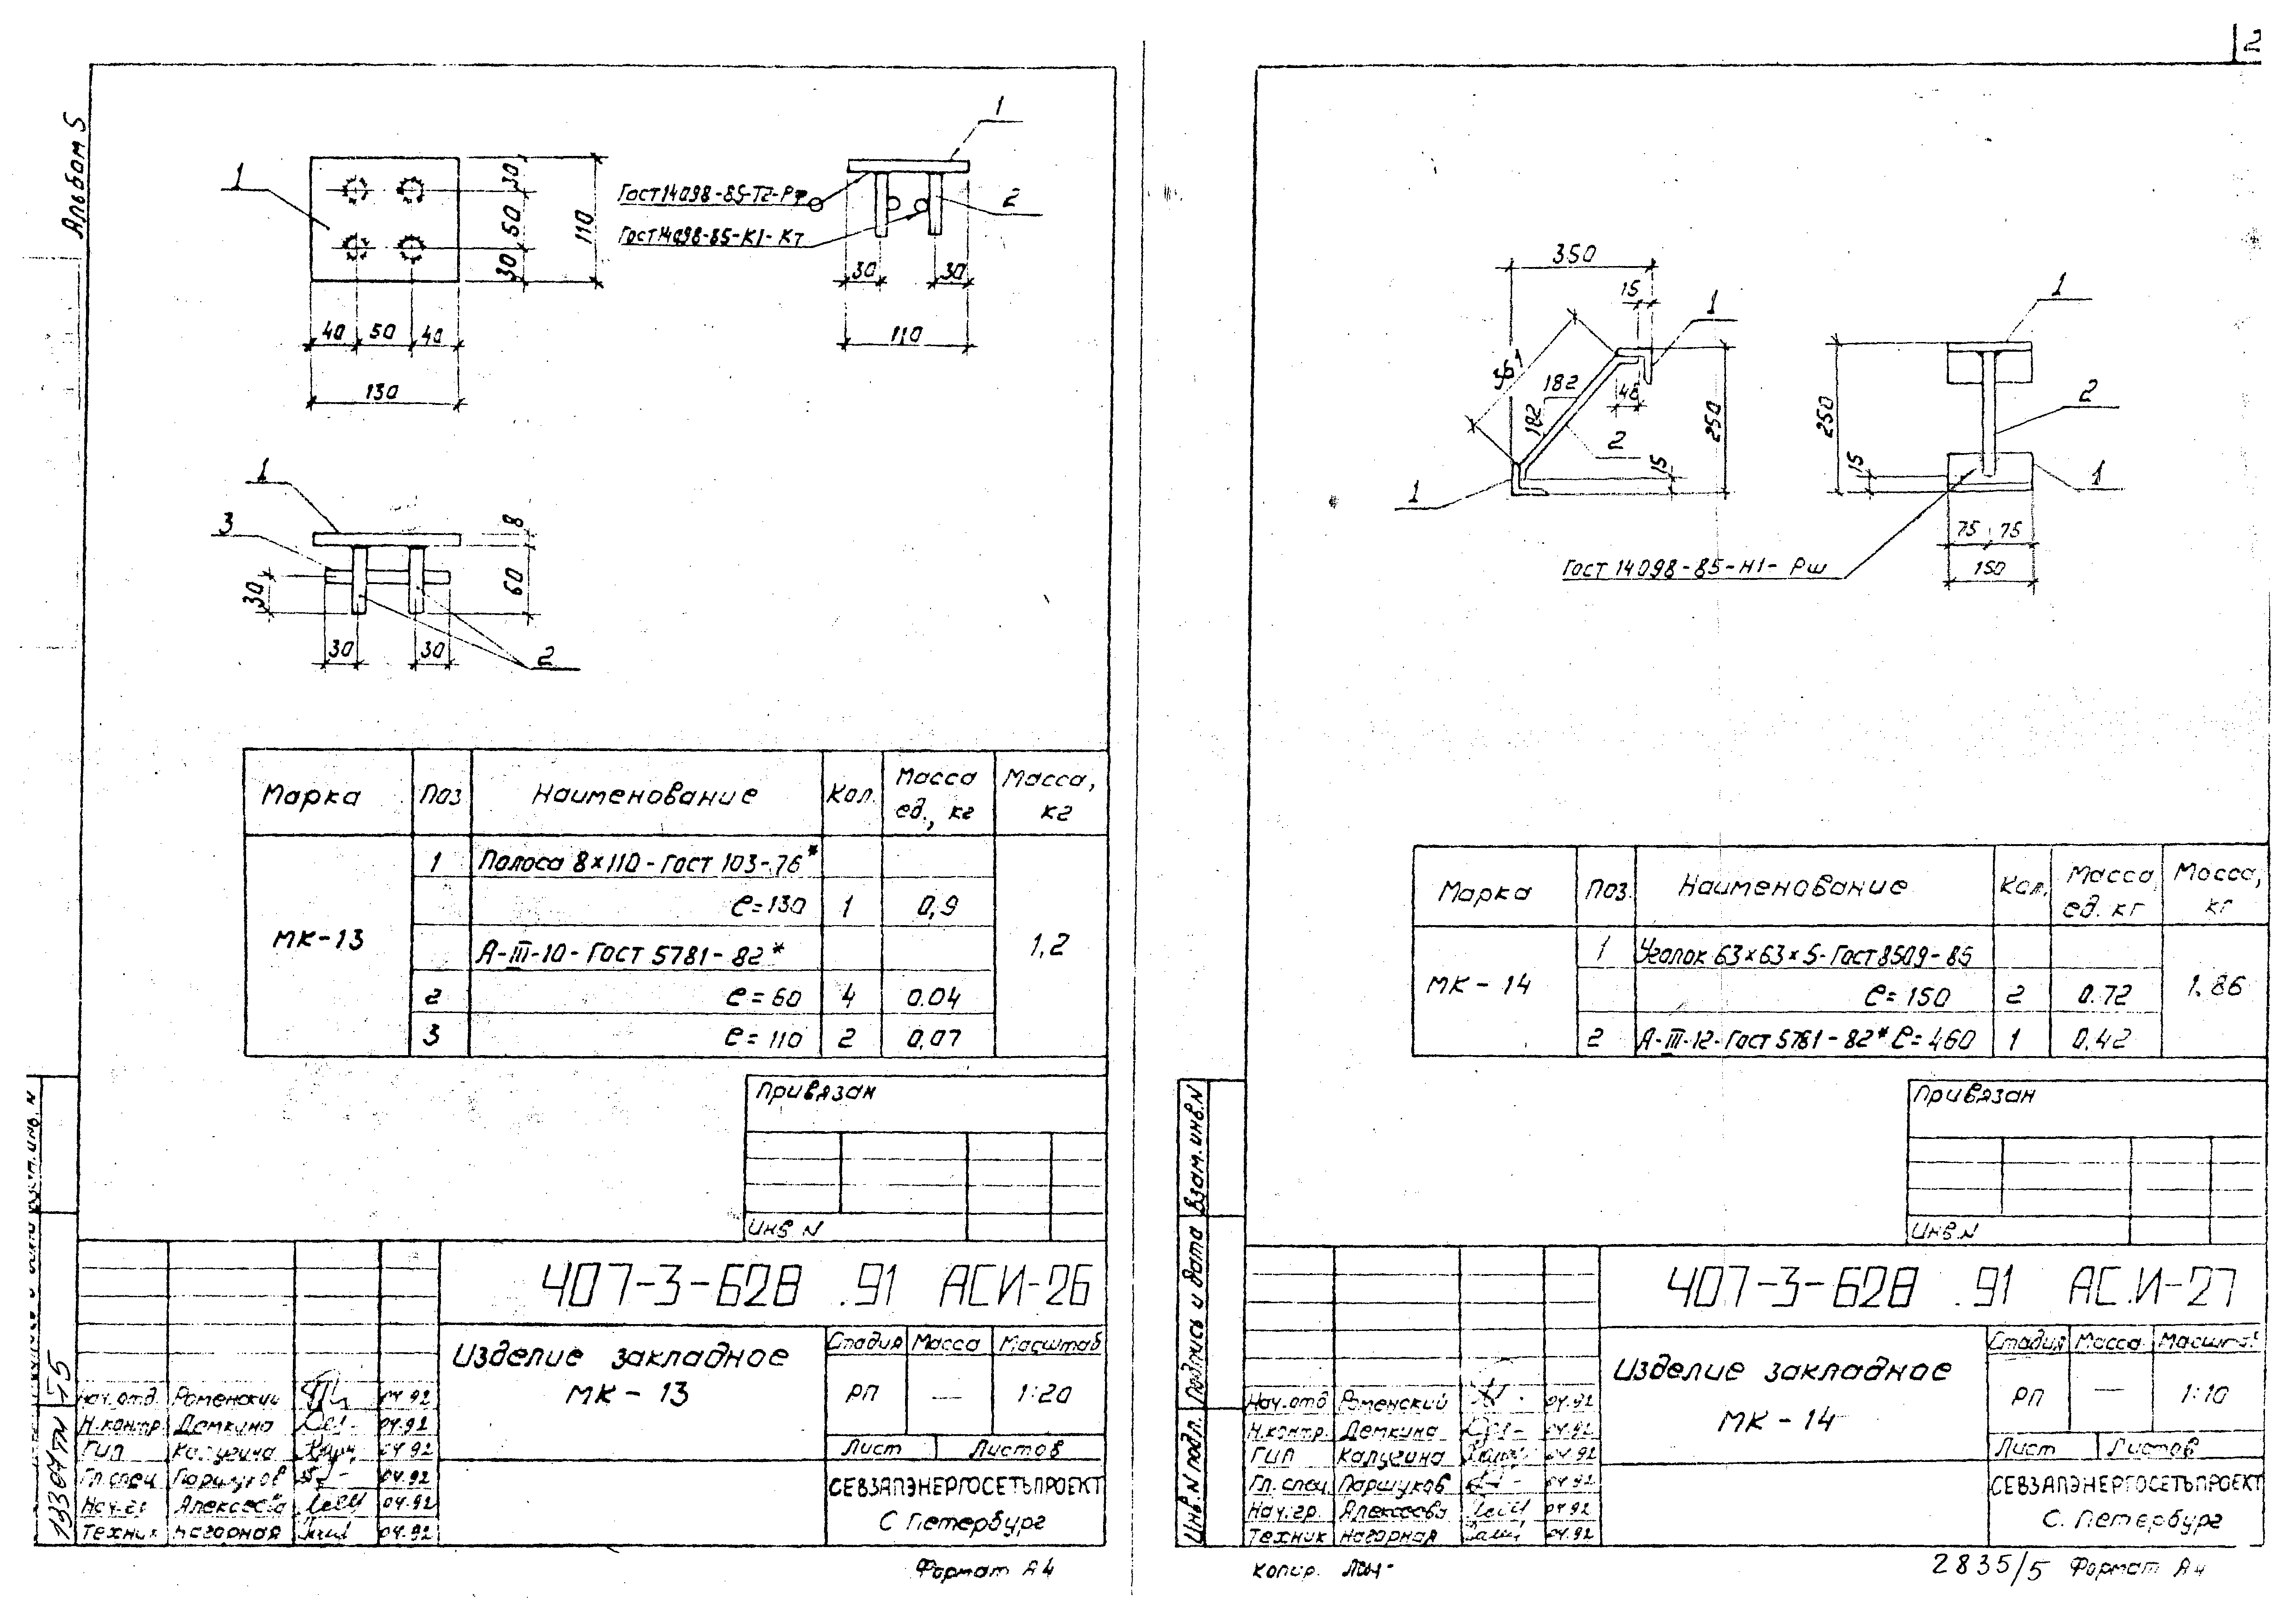 2
Альбом 5
1
30
50
30
110
40
50
40
130
Гост 14098-85-Т2-Рф
Гост 14098-85-К1-Кт
1
2
30
30
110
1
3
8
60
30
30
30
2
Марка
Поз
Наименование
Кол.
Масса ед., кг
Масса, кг
МК-13
1
Полоса 8×110-Гост 103-76*
ℓ=130
1
0,9
1,2
А-III-10-Гост 5781-82*
2
ℓ=60
4
0.04
3
ℓ=110
2
0,07
Привязан
Инв N
407-3-628 .91 АСИ-26
Изделие закладное
МК-13
Стадия
Масса
Масштаб
РП
—
1:20
Лист
Листов
СЕВЗАПЭНЕРГОСЕТЬПРОЕКТ
С Петербург
Нач.отд. Роменский 04.92
Н.контр. Демкина 04.92
ГИП Калугина 04.92
Гл.спец Паршуков 04.92
Нач.гр Алексеева 04.92
Техник Нагорная 04.92
13304тм-т5
Формат А4
350
15
1
361
182
182
40
2
250
15
1
1
250
15
2
1
75
75
150
Гост 14098-85-Н1-Рш
Марка
Поз.
Наименование
Кол.
Масса ед. кг
Масса, кг
МК-14
1
Уголок 63×63×5-Гост 8509-85
ℓ=150
2
0.72
1.86
2
А-III-12-Гост 5781-82* ℓ=460
1
0.42
Привязан
Инв.N
Взам.инв.N
Подпись и дата
Инв.N подл.
407-3-628 .91 АС.И-27
Изделие закладное
МК-14
Стадия
Масса
Масшт
РП
—
1:10
Лист
Листов
СЕВЗАПЭНЕРГОСЕТЬПРОЕКТ
С. Петербург
Нач.отд Роменский 04.92
Н.контр. Демкина 04.92
ГИП Калугина 04.92
Гл.спец Паршуков 04.92
Нач.гр. Алексеева 04.92
Техник Нагорная 04.92
Копир.
2835/5 Формат А4